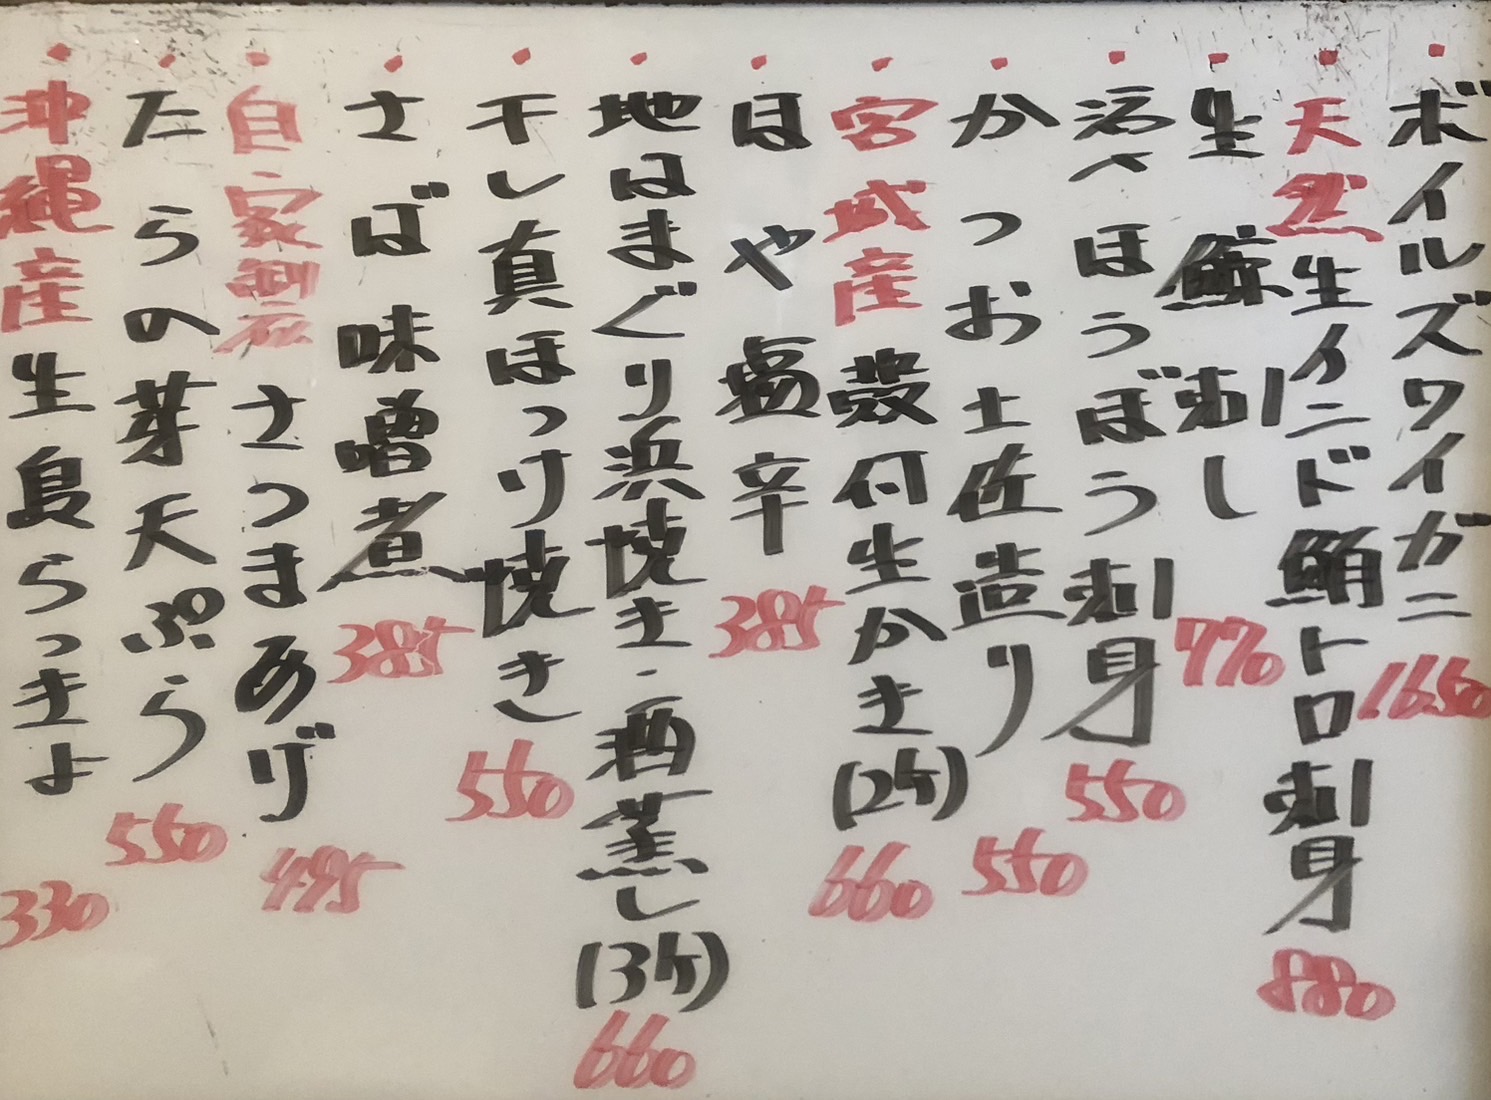 ・ボイルズワイガニ 1650
・天然生インド鮪トロ刺身 880
・生鯨刺し 770
・活〆ほうぼう刺身 550
・かつお土佐造り 550
・宮城産殻付生かき(2ケ) 660
・ほや塩辛 385
・地はまぐり浜焼き・酒蒸し(3ケ) 660
・干し真ほっけ焼き 550
・さば味噌煮 385
・自家製さつまあげ 495
・たらの芽天ぷら 550
・沖縄産生島らっきよ 330